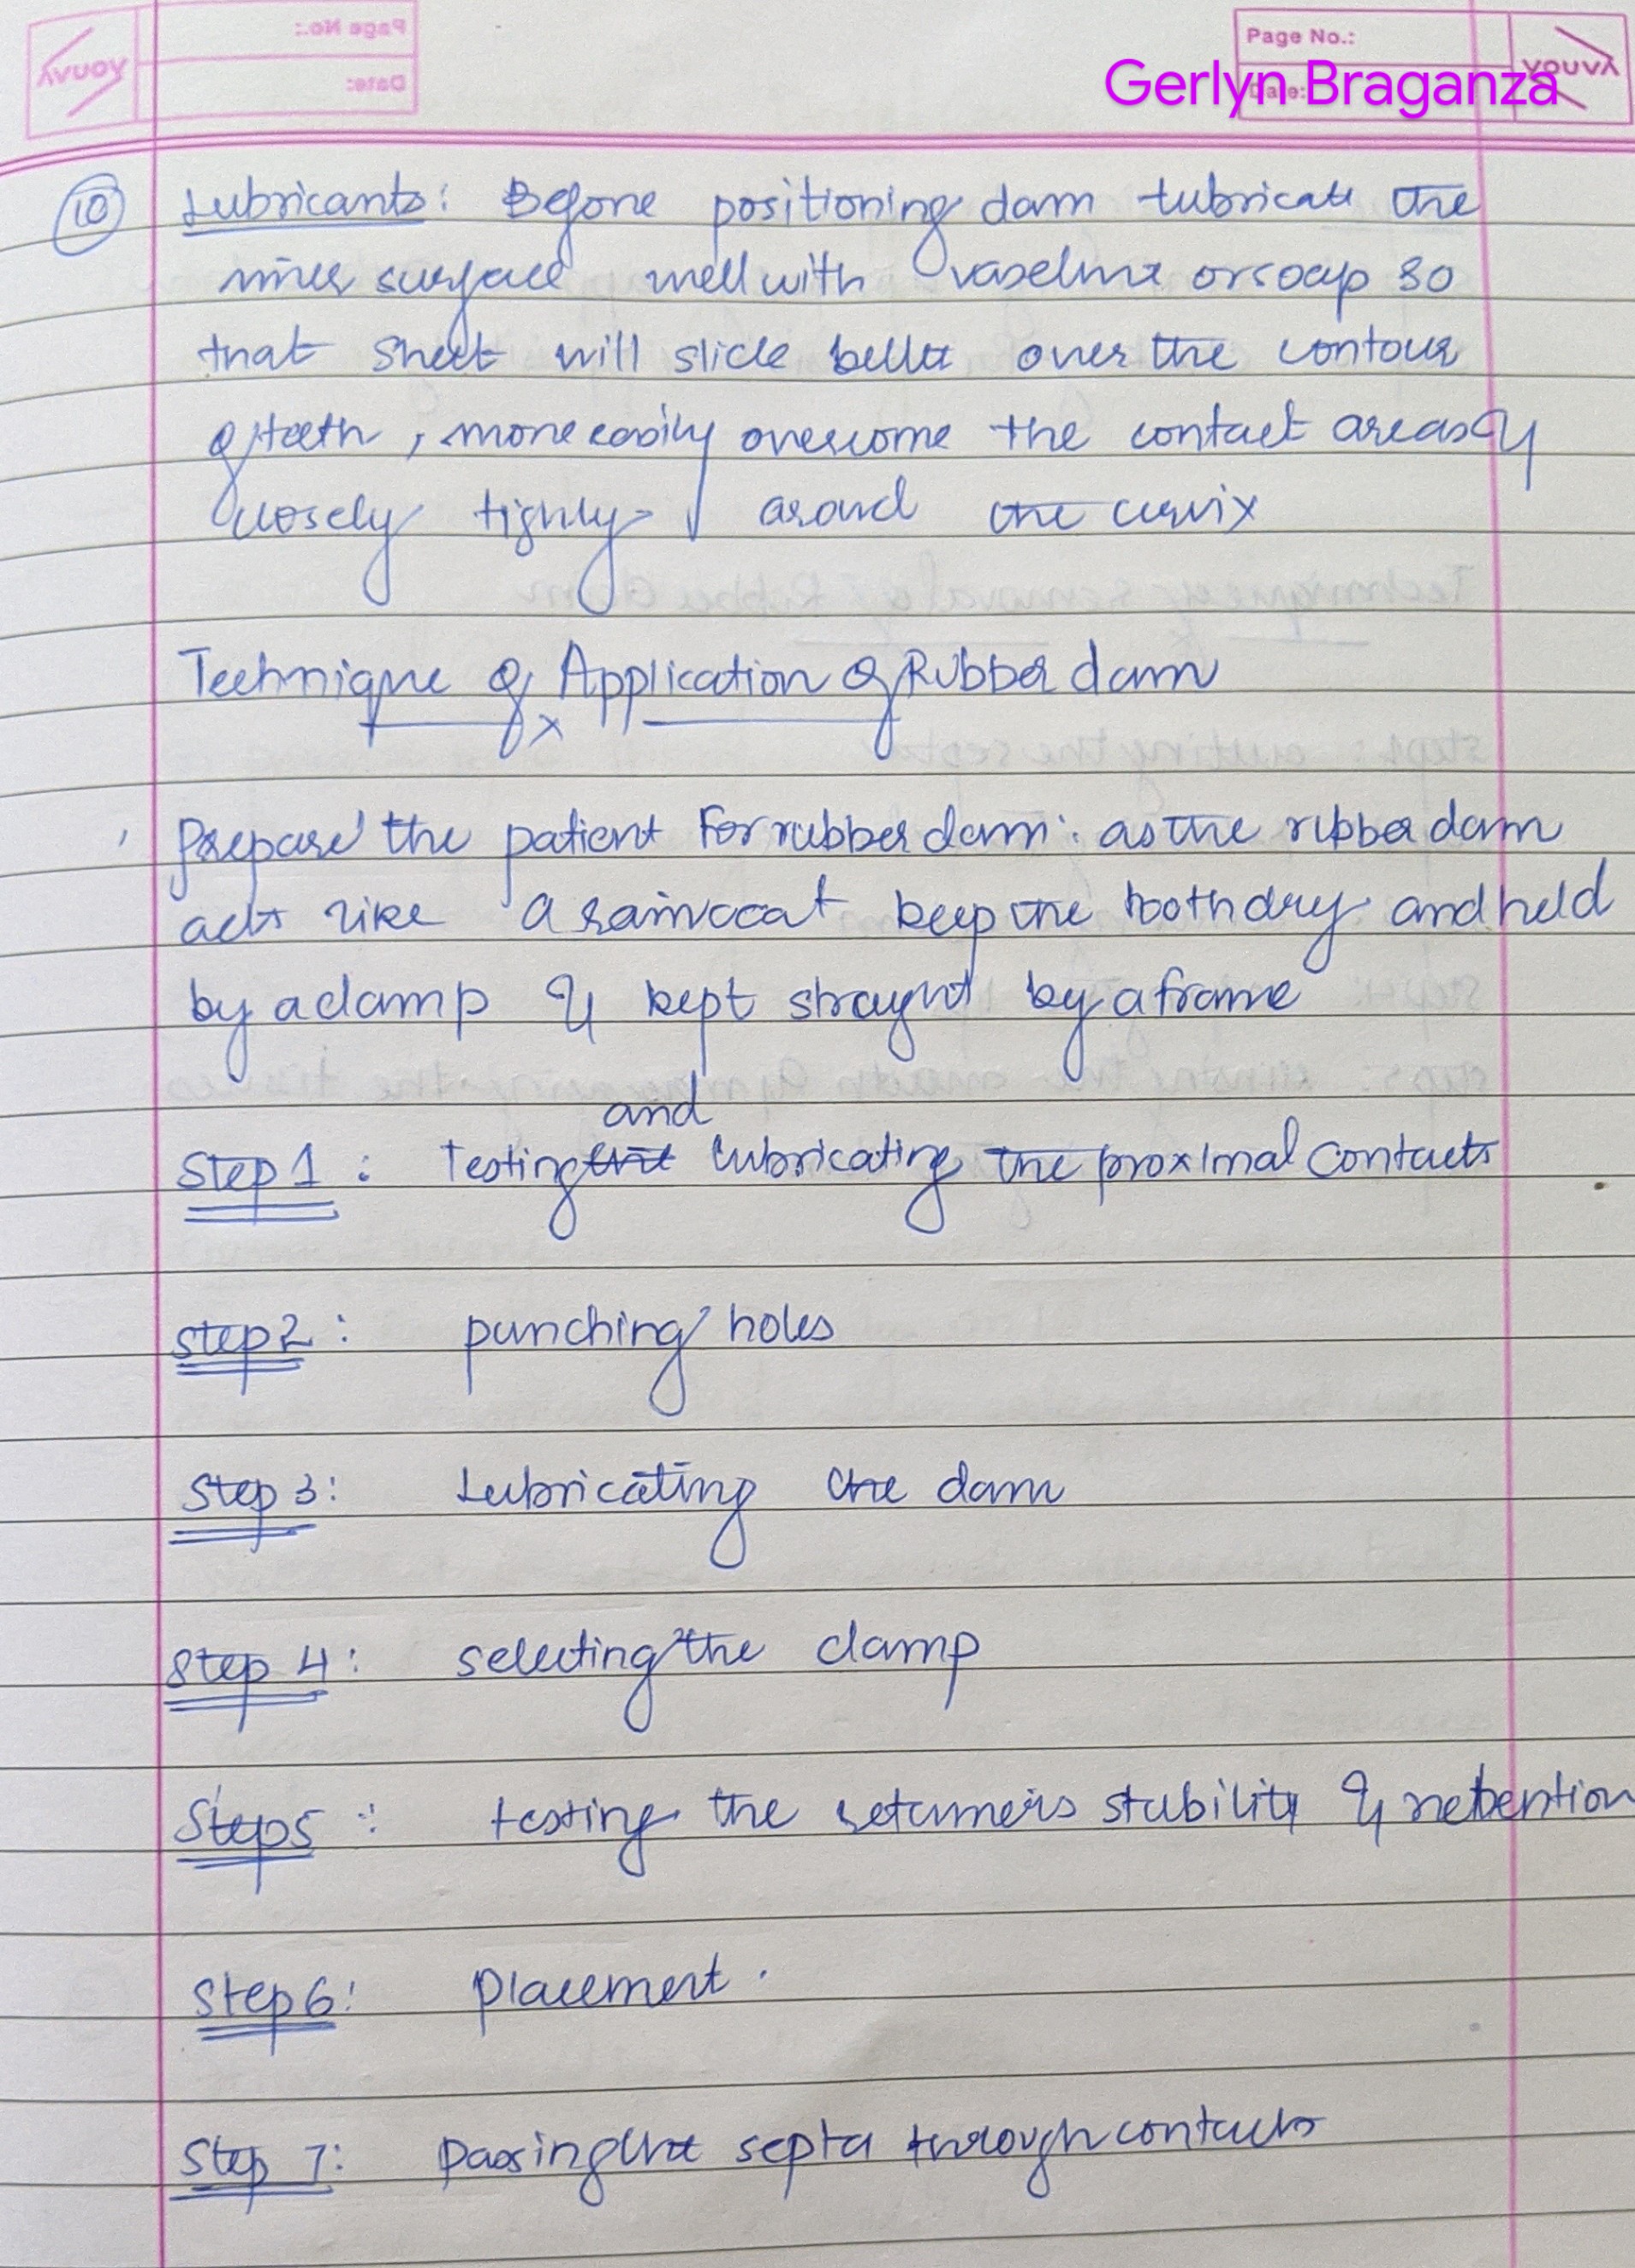 Page No.:
Date:
YOUVA
Gerlyn Braganza
10 Lubricants: Before positioning dam lubricate the
inner surface well with vaseline or soap so
that sheet will slide better over the contour
of teeth, more easily overcome the contact areas &
closely tightly around the cervix
Technique of Application of Rubber dam
Prepare the patient For rubber dam: as the rubber dam
acts like a raincoat keep the tooth dry and held
by a clamp & kept straight by a frame
and
Step 1: Testing the lubricating the proximal contacts
Step 2: punching holes
Step 3: Lubricating the dam
Step 4: selecting the clamp
Step 5: testing the retainers stability & retention
Step 6: Placement.
Step 7: Passing the septa through contacts